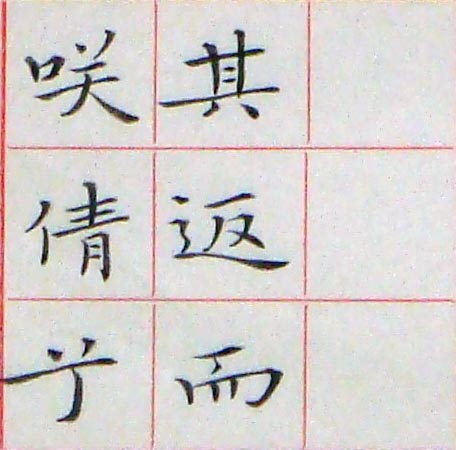 其返而
咲倩兮